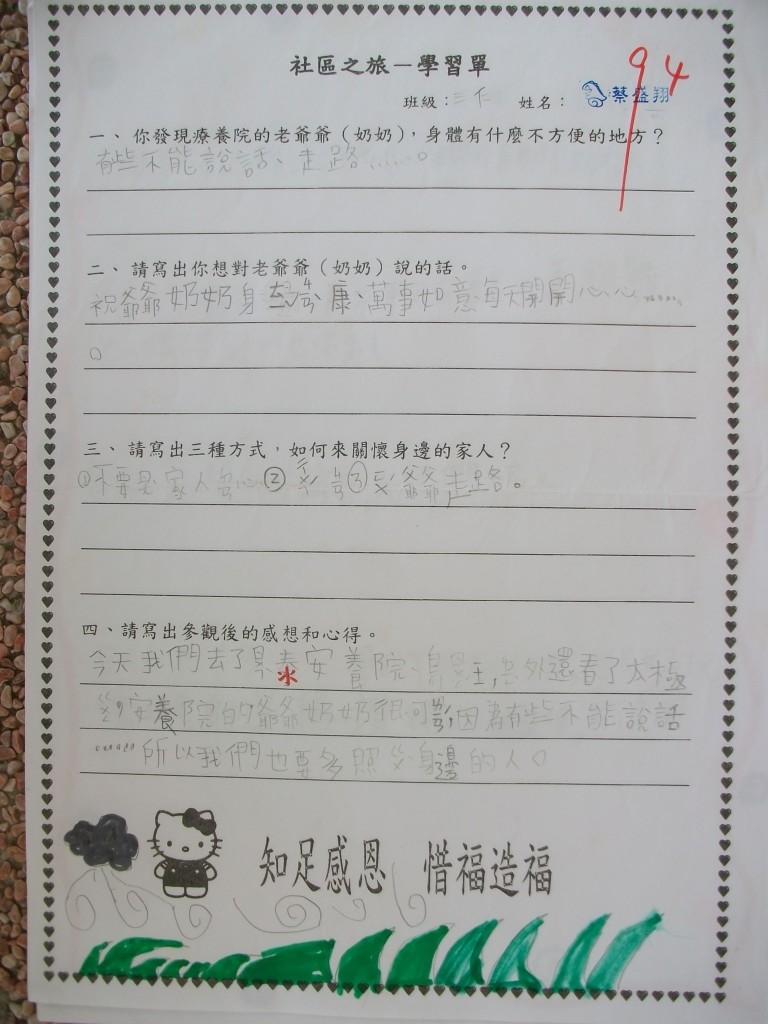 社區之旅－學習單
94
班級：三仁 姓名：蔡盛翔
一、你發現療養院的老爺爺（奶奶），身體有什麼不方便的地方？
有些不能說話、走路……。
二、請寫出你想對老爺爺（奶奶）說的話。
祝爺爺奶奶身 康、萬事如意、每天開開心心……
。
三、請寫出三種方式，如何來關懷身邊的家人？
①不要 家人 心② ③ 爺爺走路。
四、請寫出參觀後的感想和心得。
今天我們去了 泰安養院、 ，另外還看了太極
水
安養院的爺爺奶奶很可 ，因為有些不能說話
……所以我們也要多照 身邊的人。
知足感恩 惜福造福